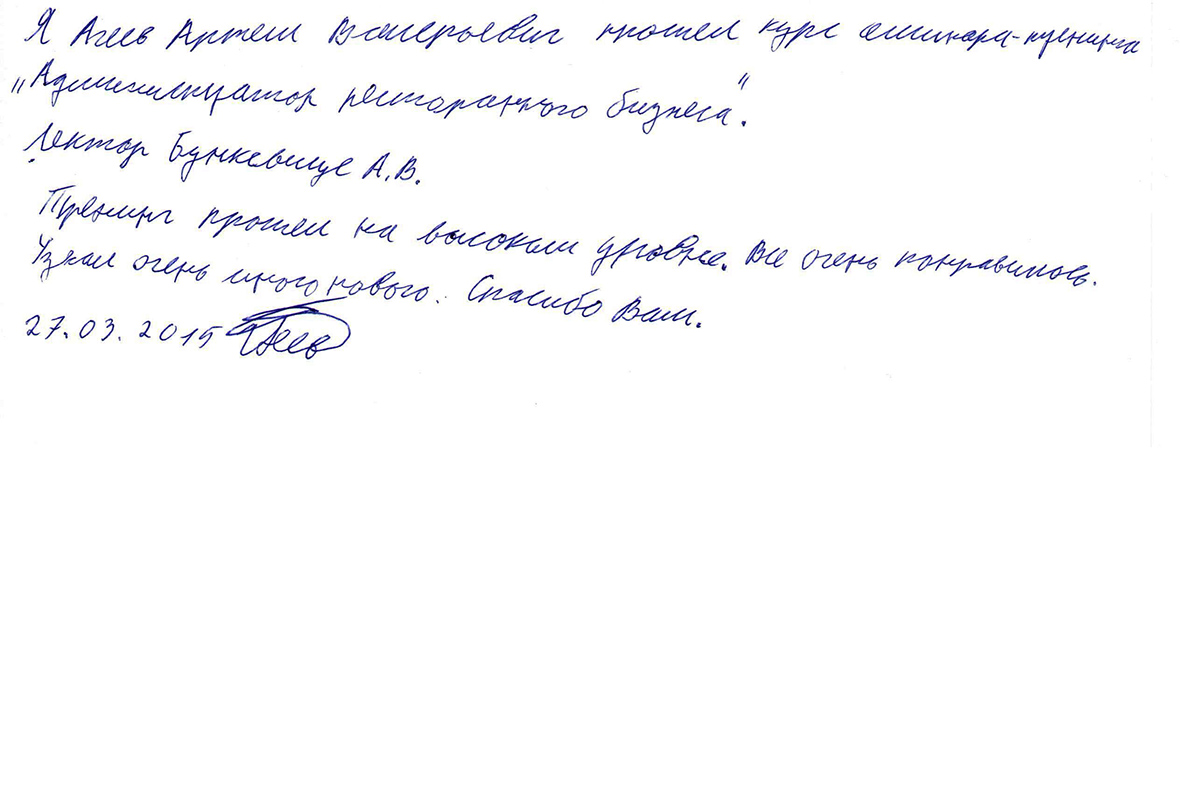 Я Агеев Артем Валерьевич прошел курс семинара-тренинга
"Администратор ресторанного бизнеса".
Лектор Бункевище А.В.
Тренинг прошел на высоком уровне. Все очень понравилось.
Узнал очень много нового. Спасибо Вам.
27.03.2015